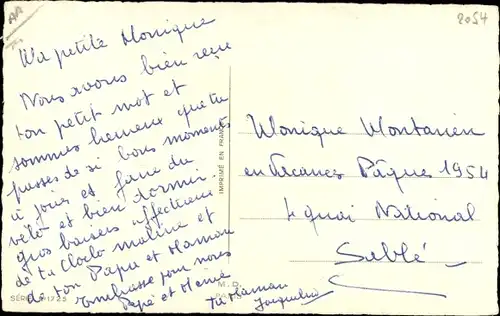 2054
Ma petite Monique
Nous avons bien reçu
ton petit mot et
sommes heureux que tu
passes de si bons moments
à jouer et faire du
vélo et bien dormir.
gros baisers affectueux
de ta Cloclo maline et
de ton Papa et Maman
embrasse pour nous
Pépé et Mémé
Ta Maman
Jacqueline
IMPRIMÉ EN FRANCE
M.D.
Monique
en Vacances Pâques 1954
4 quai National
Sablé